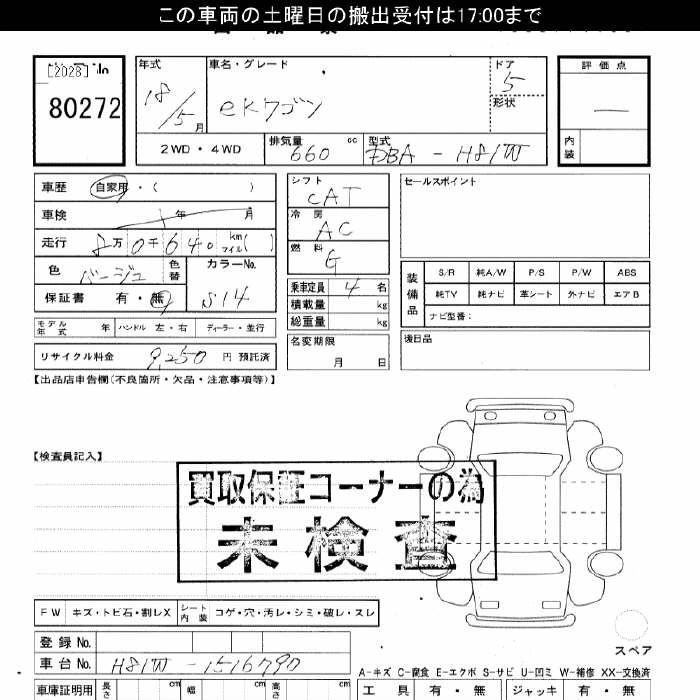 この車両の土曜日の搬出受付は17:00まで
[2028] No
80272
年式 18/5 月
車名・グレード ekワゴン
ドア 5
形状
評価点 —
内装
2WD・4WD
排気量 660 cc
型式 DBA - H81W
車歴 自家用・( )
車検 年 月
走行 8万0千640 km マイル( )
色 ベージュ 色替
カラーNo. S14
保証書 有・無
モデル年式 年 ハンドル 左・右 ディーラー・並行
リサイクル料金 9,250 円 預託済
シフト CAT
冷房 AC
燃料 G
乗車定員 4 名
積載量 kg
総重量 kg
名変期限 月 日
セールスポイント
装備品
S/R 純A/W P/S P/W ABS
純TV 純ナビ 革シート 外ナビ エアB
ナビ型番:
後日品
【出品店申告欄(不良箇所・欠品・注意事項等)】
【検査員記入】
買取保証コーナーの為
未検査
FW キズ・トビ石・割レX シート内装 コゲ・穴・汚レ・シミ・破レ・スレ
スペア
登録No.
車台No. H81W - 1516790
A-キズ C-腐食 E-エクボ S-サビ U-凹ミ W-補修 XX-交換済
車庫証明用 長さ cm 幅 cm 高さ cm
工具 有・無 ジャッキ 有・無